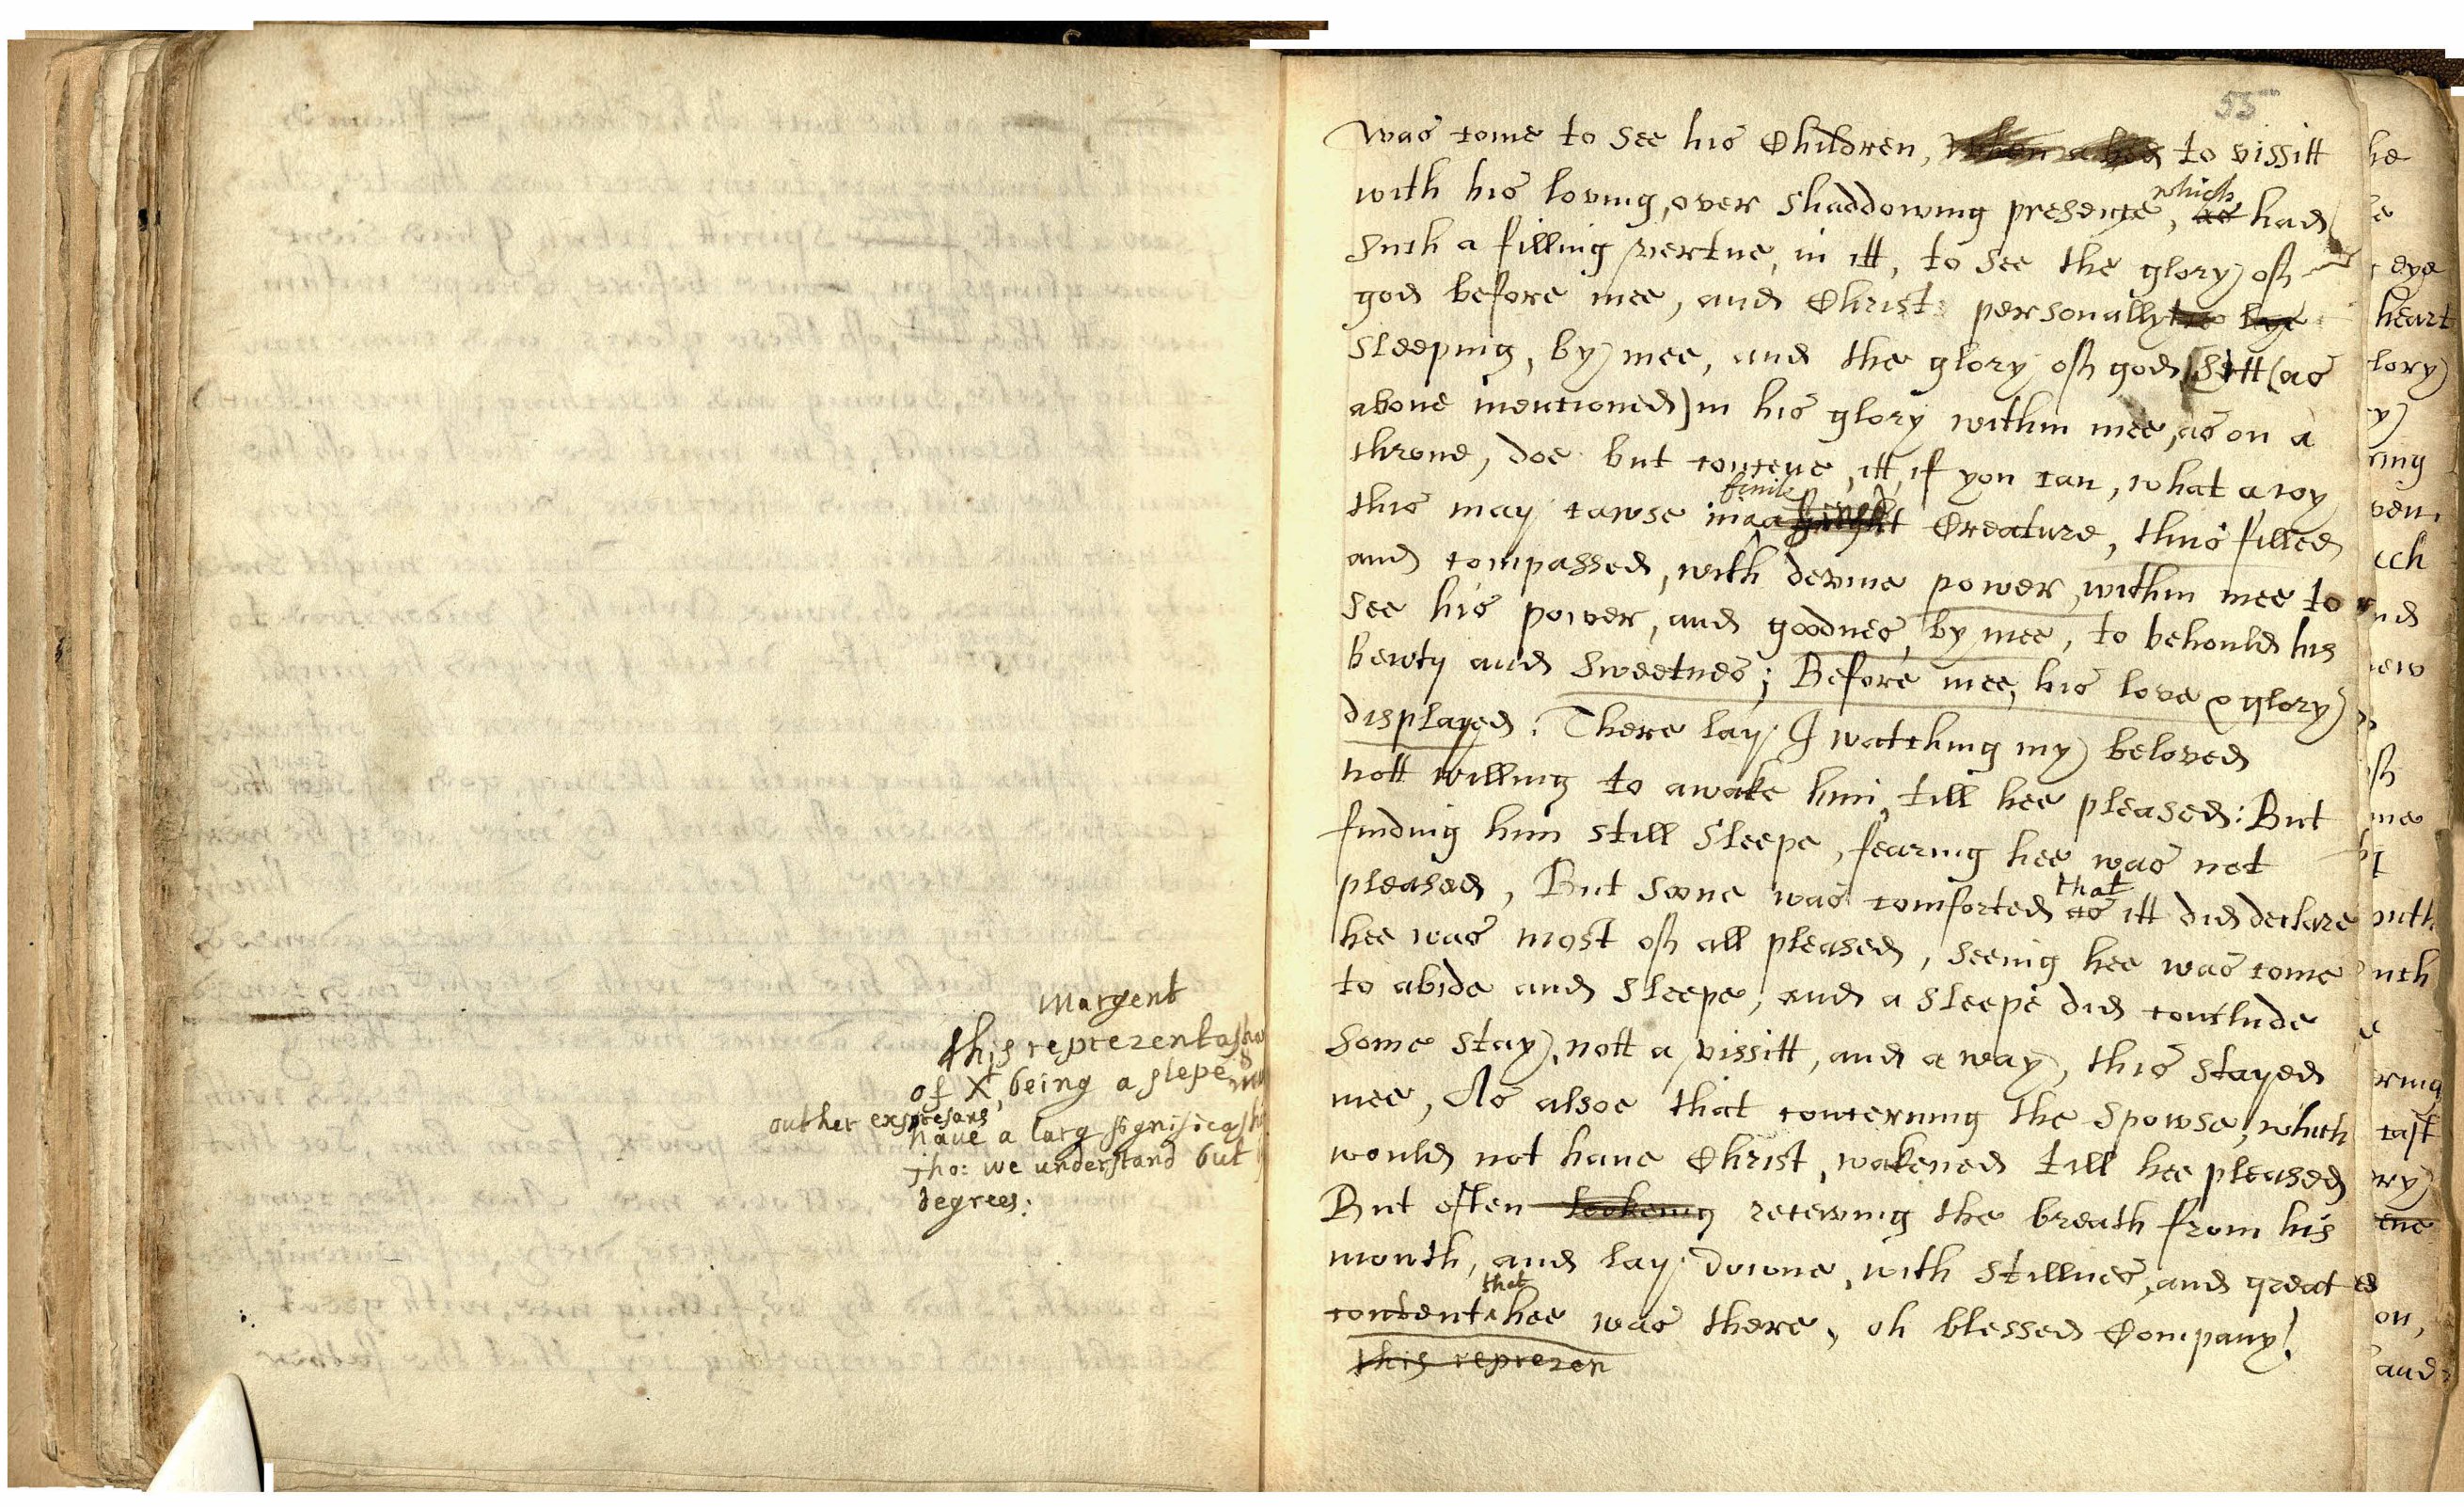 Margent
thisreprezentasho
of X being a slepe &
outher expresans
have a larg significashi
Tho: we understand but
degrees:
55
was come to see his Children, to vissitt
which
with his loving, over shaddowing presence, as had
such a filling vertue, in itt, to see the glory off
god before mee, and Christ personally lye
sleeping, by mee, and the glory off god, sitt (as
above mentioned) in his glory within mee, as on a
throne, doe but conceve, itt, if you can, what a ioy
finite
this may cawse in a Creature, thus filled
and compassed, with devine power, within mee to
see his power, and goodnes, by mee, to behould his
bewty and sweetnes; Before mee, his love & glory
displayed. There lay I watching my beloved
nott willing to awake him, till hee pleased: But
finding him still sleepe, fearing hee was not
that
pleased, But soone was comforted as itt did declare
hee was most off all pleased, seeing hee was come
to abide and sleepe, and a sleepe did conclude
some stay, nott a vissitt, and away, this stayed
mee, As alsoe that concerning the spowse, which
would not have Christ, wakened till hee pleased
But often receiving the breath from his
mouth, and lay downe, with stillnes, and great
that
content hee was there, oh blessed Company!
this reprezen